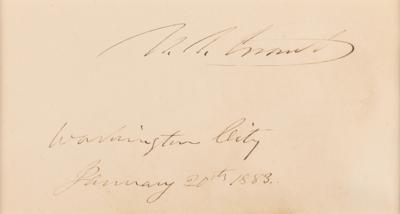 U. S. Grant
Washington City
January 20th 1883.